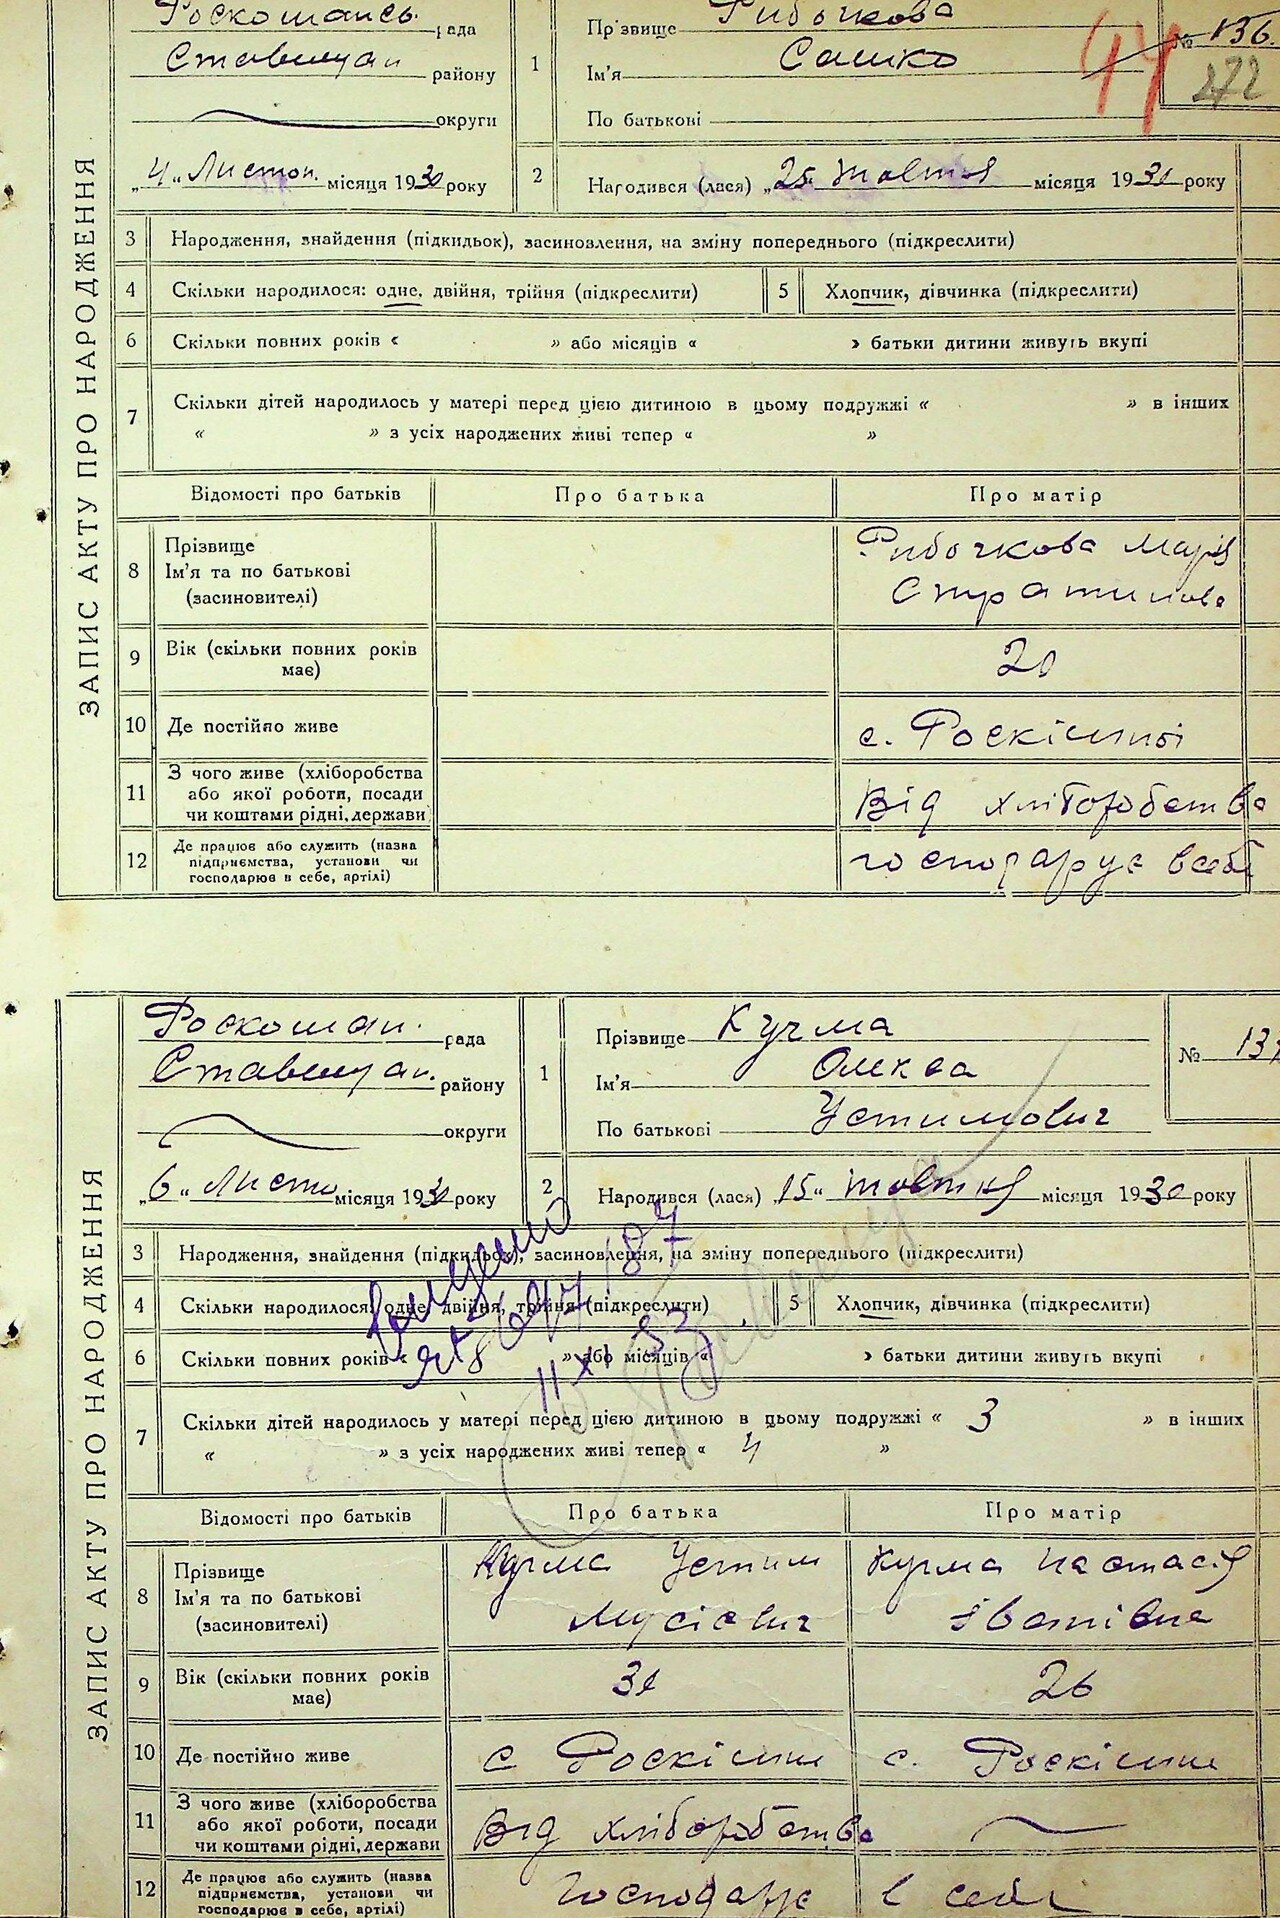 Роскошансь. рада
Прізвище Рибочкова
№ 136.
Ставищан району
1
Ім'я Сашко
44
272
округи
По батькові
„4" Листоп. місяця 1930 року
2
Народився (лася) „25" жовтня місяця 1930 року
ЗАПИС АКТУ ПРО НАРОДЖЕННЯ
3 Народження, знайдення (підкидьок), засиновлення, на зміну попереднього (підкреслити)
4 Скільки народилося: одне, двійня, трійня (підкреслити) 5 Хлопчик, дівчинка (підкреслити)
6 Скільки повних років « » або місяців « » батьки дитини живуть вкупі
7 Скільки дітей народилось у матері перед цією дитиною в цьому подружжі « » в інших
« » з усіх народжених живі тепер « »
Відомості про батьків Про батька Про матір
8 Прізвище
Ім'я та по батькові
(засиновителі)
Рибочкова Марія
9 Вік (скільки повних років
має)
20
10 Де постійно живе
с. Роскішні
11 З чого живе (хліборобства
або якої роботи, посади
чи коштами рідні, держави
Від хліборобства
12 Де працює або служить (назва
підприємства, установи чи
господарює в себе, артілі)
господарує в себе
Роскошан. рада
1
Прізвище Кучма
№ 137
Ставищан. району
Ім'я Олекса
округи
По батькові Устимович
„6" Листо місяця 1930 року
2
Народився (лася) „15" жовтня місяця 1930 року
ЗАПИС АКТУ ПРО НАРОДЖЕННЯ
3 Народження, знайдення (підкидьок), засиновлення, на зміну попереднього (підкреслити)
4 Скільки народилося: одне, двійня, трійня (підкреслити) 5 Хлопчик, дівчинка (підкреслити)
6 Скільки повних років « » або місяців « » батьки дитини живуть вкупі
7 Скільки дітей народилось у матері перед цією дитиною в цьому подружжі « 3 » в інших
« » з усіх народжених живі тепер « 4 »
Відомості про батьків Про батька Про матір
8 Прізвище
Ім'я та по батькові
(засиновителі)
Кучма Устим
Мусієвич
Кучма Настасія
Іванівна
9 Вік (скільки повних років
має)
31
26
10 Де постійно живе
с Роскішни
с. Роскішни
11 З чого живе (хліборобства
або якої роботи, посади
чи коштами рідні, держави
Від хліборобства
12 Де працює або служить (назва
підприємства, установи чи
господарює в себе, артілі)
Господарує в себе